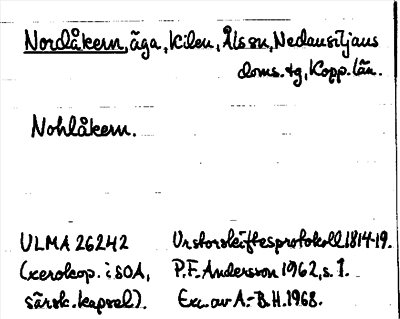 Nordåkern, äga, Kilen, Ål sn, Nedansiljans
doms.tg, Kopp. län.
Nohlåkern.
ULMA 26242 Urstorskiftesprotokoll 1814-19.
(xerokop. i SOA, P.F. Andersson 1962, s. 1.
särsk. kapsel). Exc. av A.-B.H. 1968.